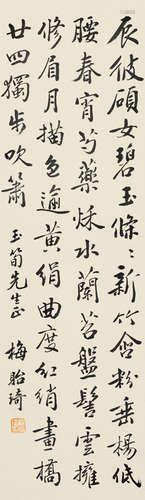 辰彼碩女碧玉條〻新竹含粉垂楊低
腰春宵芍藥秋水蘭苕盤髻雲擁
修眉月描色逾黃絹曲度紅綃畫橋
廿四獨步吹簫
玉笛先生正 梅貽琦